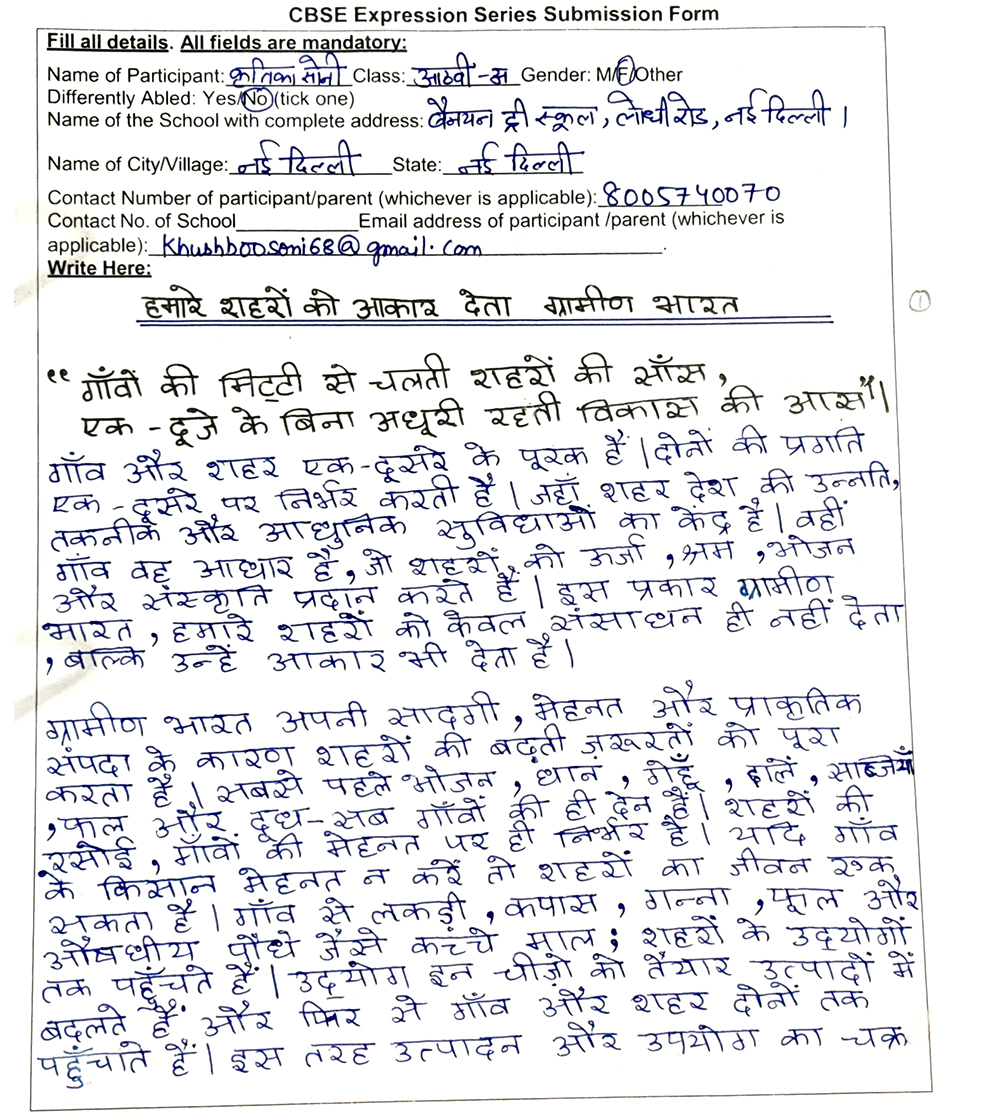 CBSE Expression Series Submission Form
Fill all details. All fields are mandatory:
Name of Participant: कृतिका सोनी Class: आठवीं-अ Gender: M/F/Other
Differently Abled: Yes/No (tick one)
Name of the School with complete address: बैनयन ट्री स्कूल, लोधी रोड, नई दिल्ली ।
Name of City/Village: नई दिल्ली State: नई दिल्ली
Contact Number of participant/parent (whichever is applicable): 8005740070
Contact No. of School__________Email address of participant /parent (whichever is
applicable): khushboosoni68@gmail.com
Write Here:
हमारे शहरों को आकार देता ग्रामीण भारत
1
“गाँवों की मिट्टी से चलती शहरों की साँस,
एक-दूजे के बिना अधूरी रहती विकास की आस”।
गाँव और शहर एक-दूसरे के पूरक हैं। दोनों की प्रगति
एक-दूसरे पर निर्भर करती है। जहाँ शहर देश की उन्नति,
तकनीक और आधुनिक सुविधाओं का केंद्र है। वहीं
गाँव वह आधार है, जो शहरों को ऊर्जा, श्रम, भोजन
और संस्कृति प्रदान करते हैं। इस प्रकार ग्रामीण
भारत, हमारे शहरों को केवल संसाधन ही नहीं देता
, बल्कि उन्हें आकार भी देता है।
ग्रामीण भारत अपनी सादगी, मेहनत और प्राकृतिक
संपदा के कारण शहरों की बढ़ती ज़रूरतों को पूरा
करता है। सबसे पहले भोजन, धान, गेहूँ, दालें, सब्जियाँ
, फल और दूध-सब गाँवों की ही देन हैं। शहरों की
रसोई, गाँवों की मेहनत पर ही निर्भर है। यदि गाँव
के किसान मेहनत न करें तो शहरों का जीवन रुक
सकता है। गाँव से लकड़ी, कपास, गन्ना, फूल और
औषधीय पौधे जैसे कच्चे माल; शहरों के उद्योगों
तक पहुँचते हैं। उद्योग इन चीज़ों को तैयार उत्पादों में
बदलते हैं और फिर से गाँव और शहर दोनों तक
पहुँचाते हैं। इस तरह उत्पादन और उपयोग का चक्र